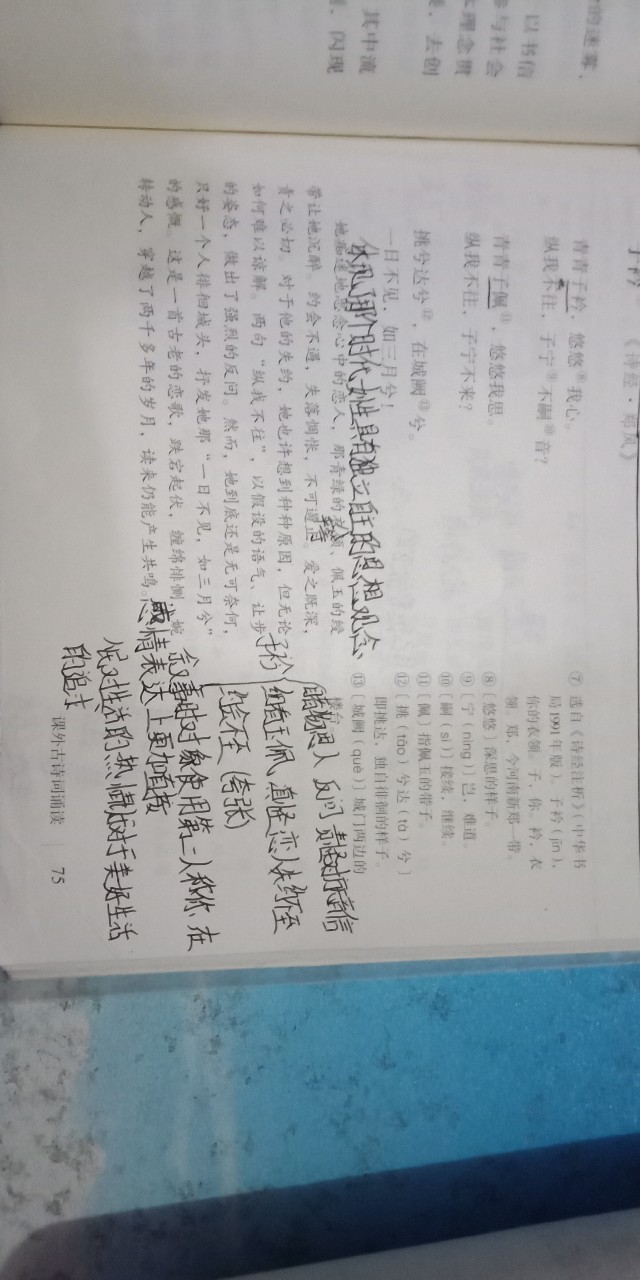 的迷雾，
以书信
参与社会
理念贯
，去创
其中流
，闪现
子衿
《诗经·郑风》
青青子衿，悠悠⑧我心。
纵我不往，子宁⑨不嗣⑩音？
青青子佩⑪，悠悠我思。
纵我不往，子宁不来？
挑兮达兮⑫，在城阙⑬兮。
一日不见，如三月兮！
体现了那个时代女性具有独立自主的思想观念、
她痴迷地思念心中的恋人，那青绿的衣领、佩玉的绶
带让她沉醉。约会不遇，失落惆怅，不可遏止。爱之既深，
责之必切。对于他的失约，她也许想到种种原因，但无论
如何难以谅解。两句“纵我不往”，以假设的语气、让步
的姿态，做出了强烈的反问。然而，她到底还是无可奈何，
只好一个人徘徊城头，抒发她那“一日不见，如三月兮”
的感慨。这是一首古老的恋歌，跌宕起伏，缠绵悱恻，婉
转动人，穿越了两千多年的岁月，读来仍能产生共鸣。
⑦ 选自《诗经注析》（中华书
局1991年版）。子衿（jīn），
你的衣领。子，你。衿，衣
领。郑，今河南新郑一带。
⑧〔悠悠〕深思的样子。
⑨〔宁（nìng）〕岂，难道。
⑩〔嗣（sì）〕接续，继续。
⑪〔佩〕指佩玉的带子。
⑫〔挑（tāo）兮达（tà）兮〕
即挑达，独自徘徊的样子。
⑬〔城阙（què）〕城门两边的
楼台。
子衿
睹物思人 反问 责怪对方无音信
佩有玉佩，责怪恋人失约不至
约会不至（夸张）
叙事时对象使用第二人称你，在
感情表达上更加直接
人民对生活的热情及对于美好生活
的追求
课外古诗词诵读 75